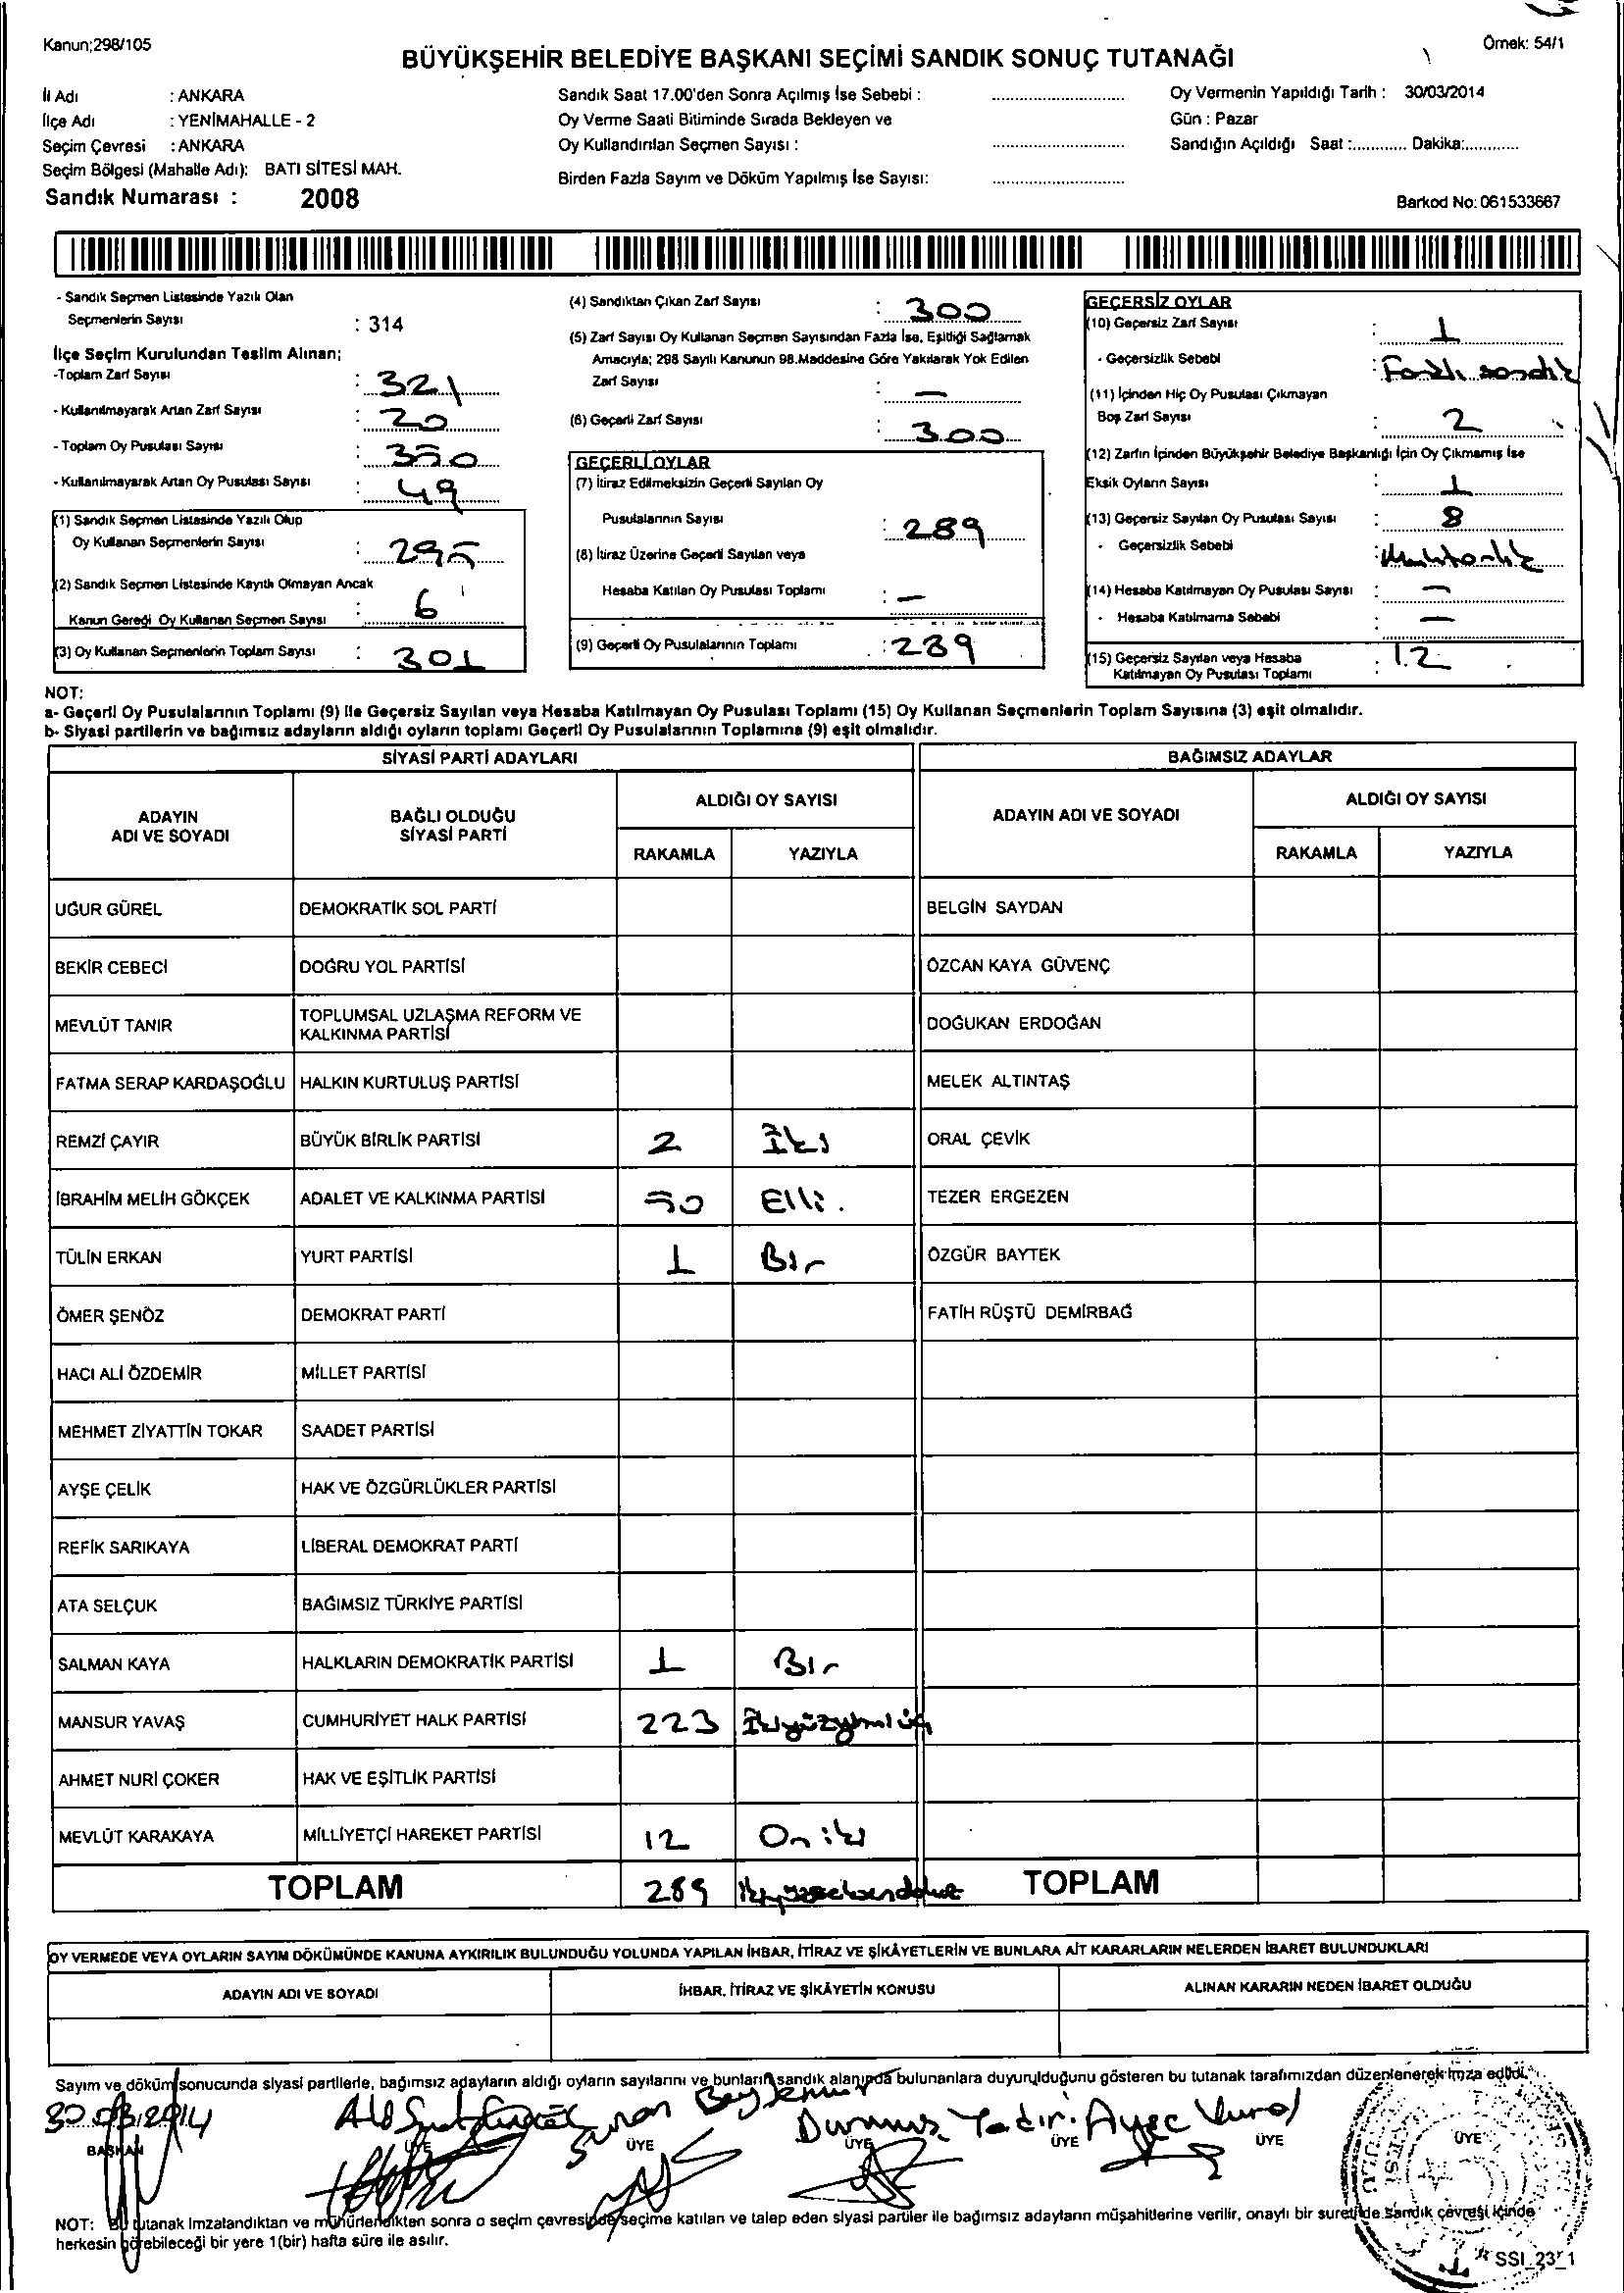 Kanun;298/105
Örnek: 54/1
BÜYÜKŞEHİR BELEDİYE BAŞKANI SEÇİMİ SANDIK SONUÇ TUTANAĞI
İl Adı : ANKARA
İlçe Adı : YENİMAHALLE - 2
Seçim Çevresi : ANKARA
Seçim Bölgesi (Mahalle Adı): BATI SİTESİ MAH.
Sandık Numarası : 2008
Sandık Saat 17.00'den Sonra Açılmış İse Sebebi :
Oy Verme Saati Bitiminde Sırada Bekleyen ve
Oy Kullandırılan Seçmen Sayısı :
Birden Fazla Sayım ve Döküm Yapılmış İse Sayısı:
Oy Vermenin Yapıldığı Tarih : 30/03/2014
Gün : Pazar
Sandığın Açıldığı Saat :............ Dakika:............
Barkod No: 061533667
- Sandık Seçmen Listesinde Yazılı Olan
Seçmenlerin Sayısı : 314
İlçe Seçim Kurulundan Teslim Alınan;
-Toplam Zarf Sayısı : 321
- Kullanılmayarak Artan Zarf Sayısı : 20
- Toplam Oy Pusulası Sayısı : 350
- Kullanılmayarak Artan Oy Pusulası Sayısı : 49
(1) Sandık Seçmen Listesinde Yazılı Olup
Oy Kullanan Seçmenlerin Sayısı : 295
(2) Sandık Seçmen Listesinde Kayıtlı Olmayan Ancak
Kanun Gereği Oy Kullanan Seçmen Sayısı : 6
(3) Oy Kullanan Seçmenlerin Toplam Sayısı : 301
(4) Sandıktan Çıkan Zarf Sayısı : 300
(5) Zarf Sayısı Oy Kullanan Seçmen Sayısından Fazla İse, Eşitliği Sağlamak
Amacıyla; 298 Sayılı Kanunun 98.Maddesine Göre Yakılarak Yok Edilen
Zarf Sayısı : —
(6) Geçerli Zarf Sayısı : 300
GEÇERLİ OYLAR
(7) İtiraz Edilmeksizin Geçerli Sayılan Oy
Pusulalarının Sayısı : 289
(8) İtiraz Üzerine Geçerli Sayılan veya
Hesaba Katılan Oy Pusulası Toplamı : —
(9) Geçerli Oy Pusulalarının Toplamı : 289
GEÇERSİZ OYLAR
(10) Geçersiz Zarf Sayısı : 1
- Geçersizlik Sebebi : Farklı sandık
(11) İçinden Hiç Oy Pusulası Çıkmayan
Boş Zarf Sayısı : 2
(12) Zarfın İçinden Büyükşehir Belediye Başkanlığı İçin Oy Çıkmamış İse
Eksik Oyların Sayısı : 1
(13) Geçersiz Sayılan Oy Pusulası Sayısı : 8
- Geçersizlik Sebebi : Muhtarlık
(14) Hesaba Katılmayan Oy Pusulası Sayısı : —
- Hesaba Katılmama Sebebi : —
(15) Geçersiz Sayılan veya Hesaba
Katılmayan Oy Pusulası Toplamı : 12
NOT:
a- Geçerli Oy Pusulalarının Toplamı (9) İle Geçersiz Sayılan veya Hesaba Katılmayan Oy Pusulası Toplamı (15) Oy Kullanan Seçmenlerin Toplam Sayısına (3) eşit olmalıdır.
b- Siyasi partilerin ve bağımsız adayların aldığı oyların toplamı Geçerli Oy Pusulalarının Toplamına (9) eşit olmalıdır.
SİYASİ PARTİ ADAYLARI BAĞIMSIZ ADAYLAR
ADAYIN ADI VE SOYADI BAĞLI OLDUĞU SİYASİ PARTİ ALDIĞI OY SAYISI ADAYIN ADI VE SOYADI ALDIĞI OY SAYISI
RAKAMLA YAZIYLA RAKAMLA YAZIYLA
UĞUR GÜREL DEMOKRATİK SOL PARTİ BELGİN SAYDAN
BEKİR CEBECİ DOĞRU YOL PARTİSİ ÖZCAN KAYA GÜVENÇ
MEVLÜT TANIR TOPLUMSAL UZLAŞMA REFORM VE KALKINMA PARTİSİ DOĞUKAN ERDOĞAN
FATMA SERAP KARDAŞOĞLU HALKIN KURTULUŞ PARTİSİ MELEK ALTINTAŞ
REMZİ ÇAYIR BÜYÜK BİRLİK PARTİSİ 2 İki ORAL ÇEVİK
İBRAHİM MELİH GÖKÇEK ADALET VE KALKINMA PARTİSİ 50 Elli. TEZER ERGEZEN
TÜLİN ERKAN YURT PARTİSİ 1 Bir ÖZGÜR BAYTEK
ÖMER ŞENÖZ DEMOKRAT PARTİ FATİH RÜŞTÜ DEMİRBAĞ
HACI ALİ ÖZDEMİR MİLLET PARTİSİ
MEHMET ZİYATTİN TOKAR SAADET PARTİSİ
AYŞE ÇELİK HAK VE ÖZGÜRLÜKLER PARTİSİ
REFİK SARIKAYA LİBERAL DEMOKRAT PARTİ
ATA SELÇUK BAĞIMSIZ TÜRKİYE PARTİSİ
SALMAN KAYA HALKLARIN DEMOKRATİK PARTİSİ 1 Bir
MANSUR YAVAŞ CUMHURİYET HALK PARTİSİ 223 İkiyüzyirmiüç
AHMET NURİ ÇOKER HAK VE EŞİTLİK PARTİSİ
MEVLÜT KARAKAYA MİLLİYETÇİ HAREKET PARTİSİ 12 Oniki
TOPLAM 289 İkiyüzseksendokuz TOPLAM
OY VERMEDE VEYA OYLARIN SAYIM DÖKÜMÜNDE KANUNA AYKIRILIK BULUNDUĞU YOLUNDA YAPILAN İHBAR, İTİRAZ VE ŞİKÂYETLERİN VE BUNLARA AİT KARARLARIN NELERDEN İBARET BULUNDUKLARI
ADAYIN ADI VE SOYADI İHBAR, İTİRAZ VE ŞİKÂYETİN KONUSU ALINAN KARARIN NEDEN İBARET OLDUĞU
Sayım ve döküm sonucunda siyasi partilerle, bağımsız adayların aldığı oyların sayılarını ve bunların sandık alanında bulunanlara duyurulduğunu gösteren bu tutanak tarafımızdan düzenlenerek imza edildi.
30.03.2014 Durmuş Ayşe Vural
BAŞKAN ÜYE ÜYE ÜYE ÜYE ÜYE ÜYE
NOT: Bu tutanak İmzalandıktan ve mühürlendikten sonra o seçim çevresinde seçime katılan ve talep eden siyasi partiler ile bağımsız adayların müşahitlerine verilir, onaylı bir suretide sandık çevresi içinde
herkesin görebileceği bir yere 1(bir) hafta süre ile asılır.
SSI_23_1